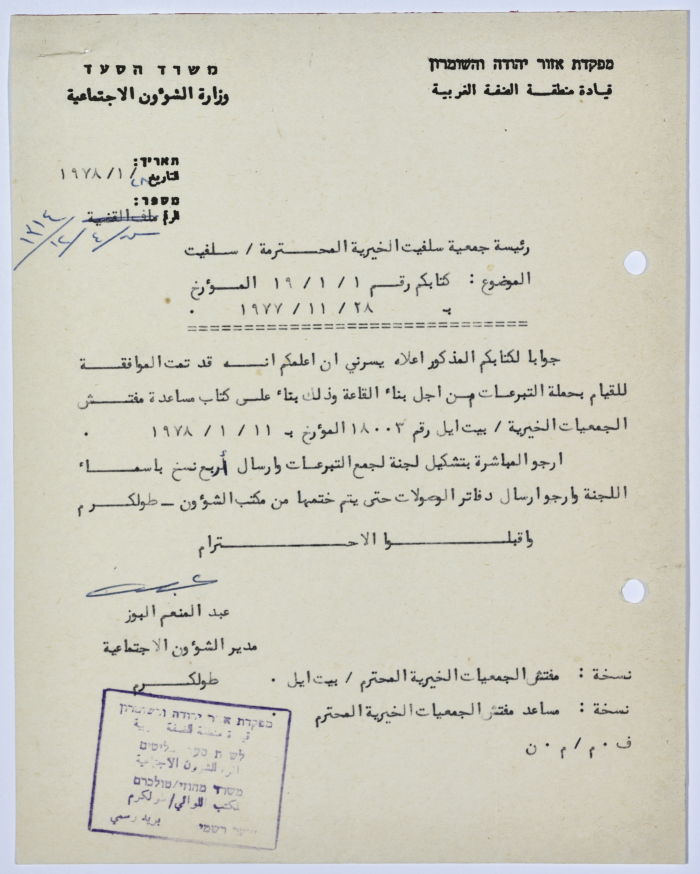 מפקדת אזור יהודה והשומרון
قيادة منطقة الضفة الغربية
משרד הסעד
وزارة الشؤون الاجتماعية
תאריך:
التاريخ ٢٨/ ١ / ١٩٧٨
מספר:
الرقم ملف القضية
١٢/٤
رئيسة جمعية سلفيت الخيرية المحترمة / سلفيت
الموضوع : كتابكم رقم ١ / ١ / ١٩ المؤرخ
بـ ٢٨ / ١١ / ١٩٧٧ .
جوابا لكتابكم المذكور اعلاه يسرني ان اعلمكم انه قد تمت الموافقة
للقيام بحملة التبرعات من اجل بناء القاعة وذلك بناء على كتاب مساعدة مفتش
الجمعيات الخيرية / بيت ايل رقم ١٨٠٠٣ المؤرخ بـ ١١ / ١ / ١٩٧٨ .
ارجو المباشرة بتشكيل لجنة لجمع التبرعات وارسال أربع نسخ باسماء
اللجنة وارجو ارسال دفاتر الوصولات حتى يتم ختمها من مكتب الشؤون - طولكرم
واقبلوا الاحترام
عبد المنعم البوز
مدير الشؤون الاجتماعية
طولكرم
نسخة : مفتش الجمعيات الخيرية المحترم / بيت ايل .
نسخة : مساعد مفتش الجمعيات الخيرية المحترم .
ف ٠ م / م ٠ ن
מפקדת אזור יהודה והשומרון
قيادة منطقة الضفة
الشؤون الاجتماعية
משרד מחוזי/טולכרם
مكتب اللوائي/طولكرم
بريد رسمي